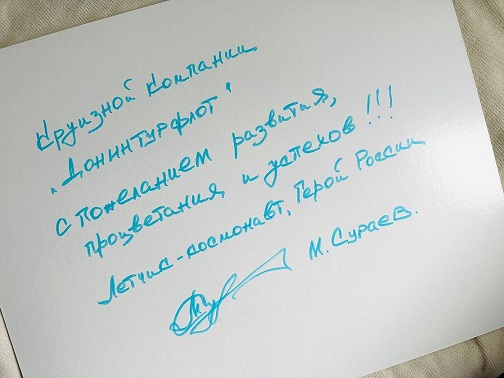 Круизной компании
"Донинтурфлот"
с пожеланием развития,
процветания и успехов!!!
Летчик-космонавт, Герой России
М. Сураев.